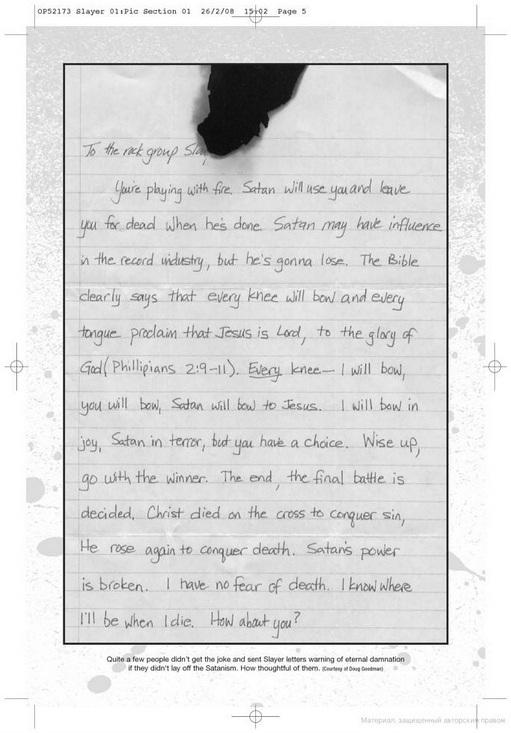 OP52173 Slayer 01:Pic Section 01 26/2/08 15:02 Page 5
To the rock group Slay
You're playing with fire. Satan will use you and leave
you for dead when he's done. Satan may have influence
in the record industry, but he's gonna lose. The Bible
clearly says that every knee will bow and every
tongue proclaim that Jesus is Lord, to the glory of
God (Phillipians 2:9-11). Every knee— I will bow,
you will bow, Satan will bow to Jesus. I will bow in
joy, Satan in terror, but you have a choice. Wise up,
go with the winner. The end, the final battle is
decided. Christ died on the cross to conquer sin,
He rose again to conquer death. Satan's power
is broken. I have no fear of death. I know where
I'll be when I die. How about you?
Quite a few people didn't get the joke and sent Slayer letters warning of eternal damnation
if they didn't lay off the Satanism. How thoughtful of them. (Courtesy of Doug Goodman)
Материал, защищенный авторским правом